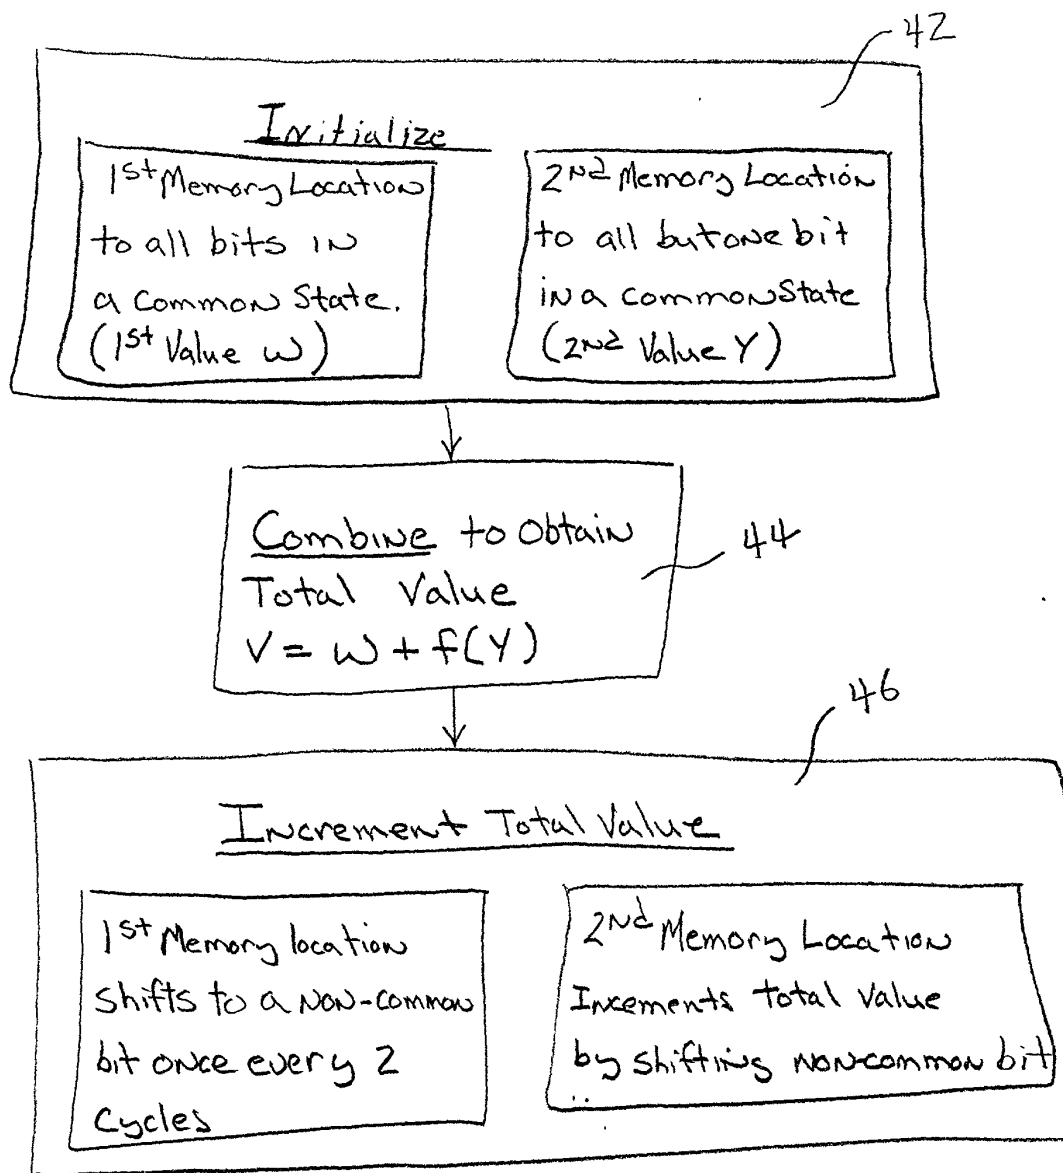 42
Initialize
1st Memory Location
to all bits in
a common state.
(1st Value W)
2nd Memory Location
to all but one bit
in a common state
(2nd Value Y)
Combine to obtain
Total Value
V = W + f(Y)
44
46
Increment Total Value
1st Memory location
shifts to a non-common
bit once every 2
cycles
2nd Memory Location
Incements total value
by shifting non-common bit